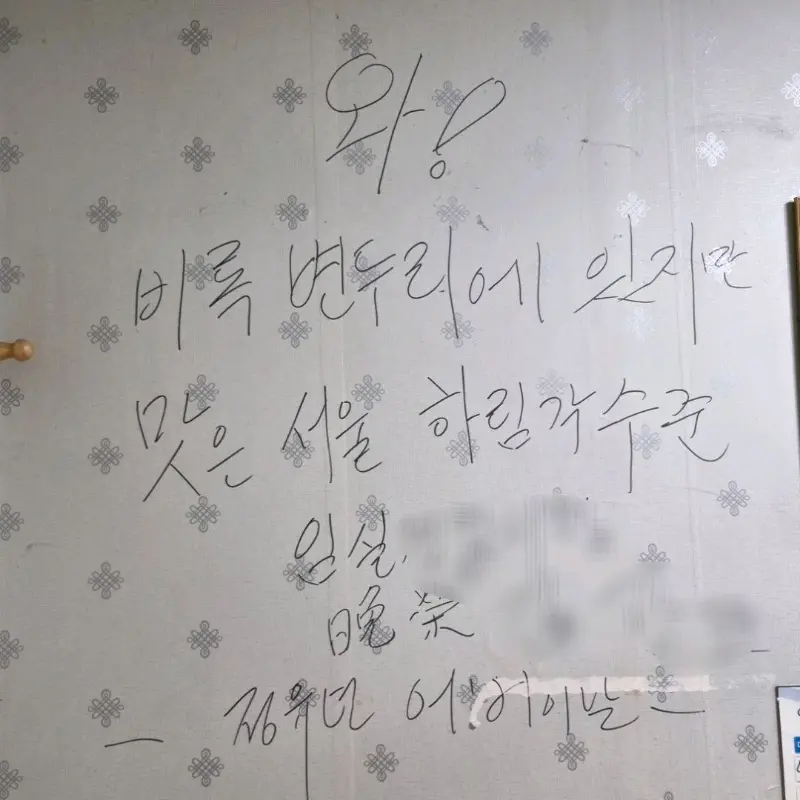 와!
비록 변두리에 있지만
맛은 서울 하림각수준
임실.
晩榮
정유년 어버이날